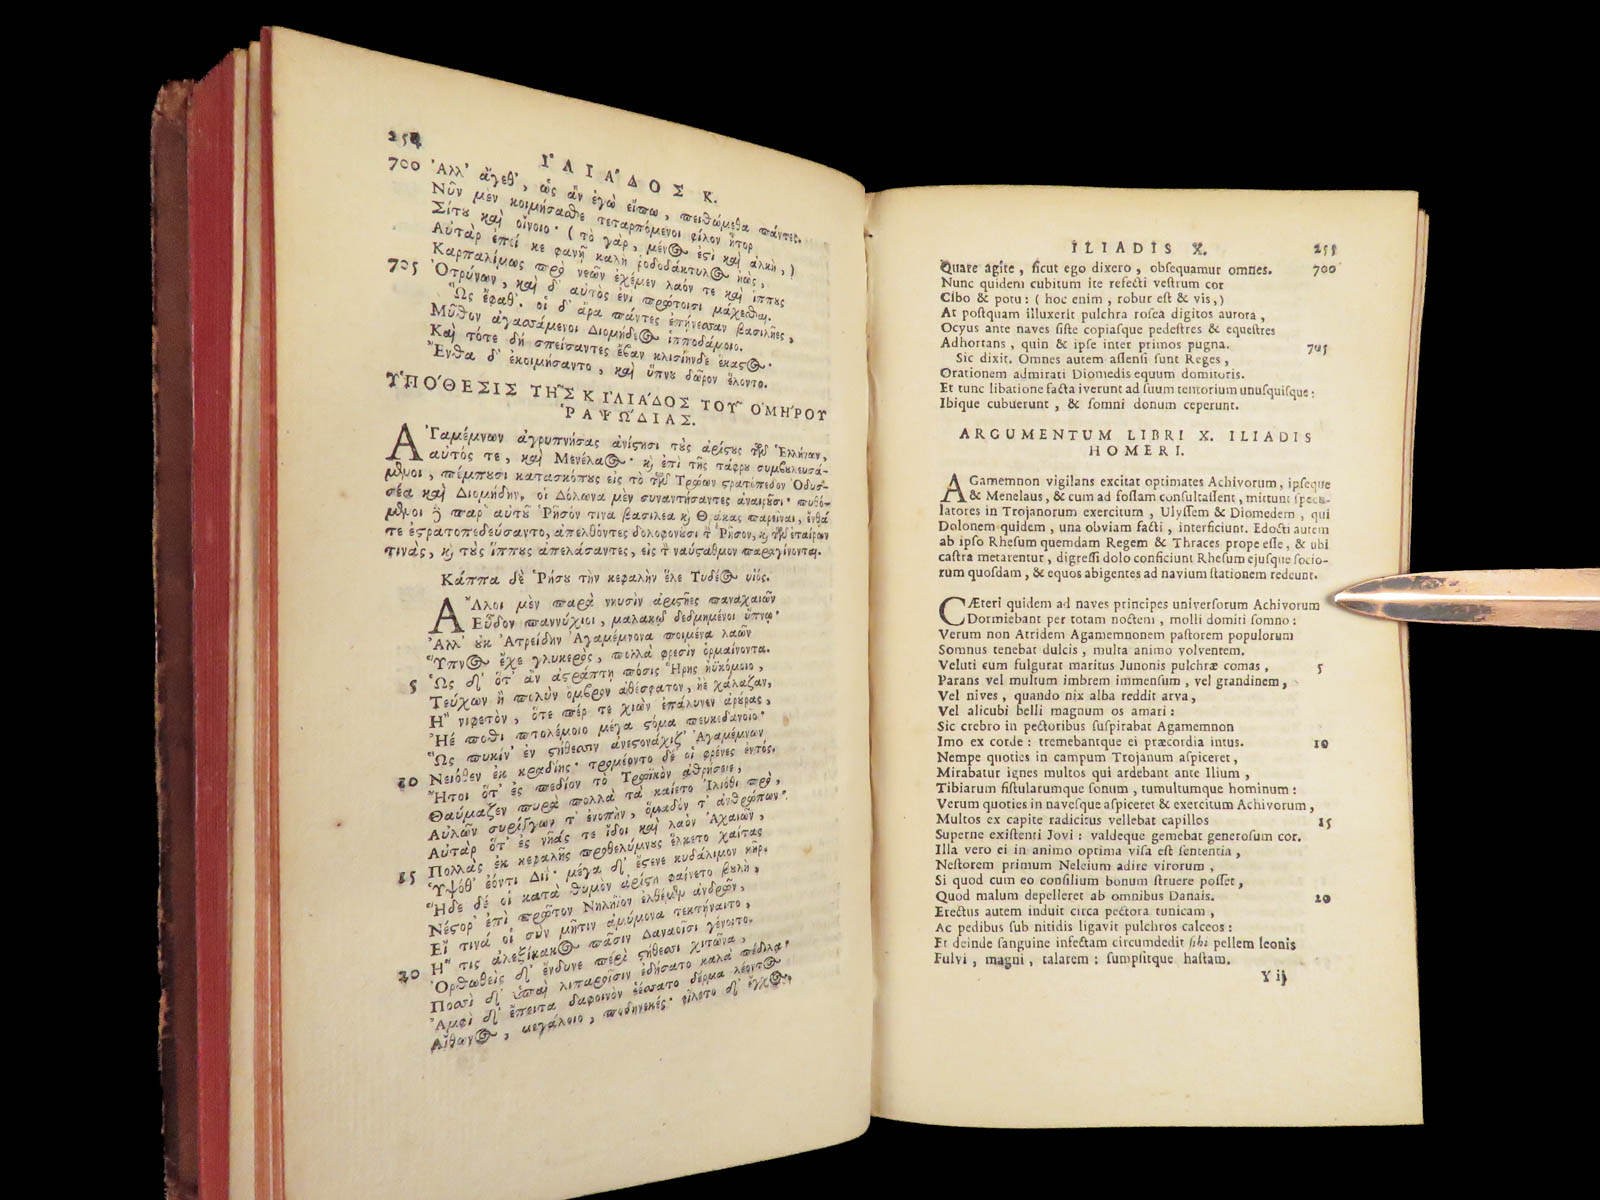 254
ἸΛΙΆΔΟΣ Κ.
700 Ἀλλ' ἄγεθ', ὡς ἂν ἐγὼ εἴπω, πειθώμεθα πάντες.
Νῦν μὲν κοιμήσασθε τεταρπόμενοι φίλον ἦτορ
Σίτου καὶ οἴνοιο· (τὸ γὰρ, μένος ἐστὶ καὶ ἀλκὴ,)
Αὐτὰρ ἐπεί κε φανῇ καλὴ ῥοδοδάκτυλος ἠὼς,
Καρπαλίμως πρὸ νεῶν ἐχέμεν λαόν τε καὶ ἵππους
705 Ὀτρύνων, καὶ δ' αὐτὸς ἐνὶ πρώτοισι μάχεσθαι.
Ὣς ἔφαθ'. οἱ δ' ἄρα πάντες ἐπῄνεσαν βασιλῆες,
Μῦθον ἀγασσάμενοι Διομήδεος ἱπποδάμοιο.
Καὶ τότε δὴ σπείσαντες ἔβαν κλισίηνδε ἕκαστος·
Ἔνθα δ' ἐκοιμήσαντο, καὶ ὕπνου δῶρον ἕλοντο.
ὙΠΌΘΕΣΙΣ ΤΗ͂Σ Κ ἸΛΙΆΔΟΣ ΤΟΥ͂ ὉΜΉΡΟΥ
ῬΑΨΩΔΊΑΣ.
ἈΓαμέμνων ἀγρυπνήσας ἀνίστησι τοὺς ἀρίστους τῶν Ἑλλήνων,
αὐτός τε, καὶ Μενέλαος· καὶ ἐπὶ τῆς τάφρου συμβουλευσά-
μενοι, πέμπουσι κατασκόπους εἰς τὸ τῶν Τρώων στρατόπεδον Ὀδυσ-
σέα καὶ Διομήδην. οἱ Δόλωνα μὲν συναντήσαντες ἀναιροῦσι· πυθό-
μενοι δὲ παρ' αὐτοῦ Ῥῆσόν τινα βασιλέα καὶ Θρᾷκας παρεῖναι, ἔνθα
τε ἐστρατοπεδεύσαντο, ἀπελθόντες δολοφονοῦσι τὸν Ῥῆσον, καὶ τῶν ἑταίρων
τινὰς, καὶ τοὺς ἵππους ἀπελάσαντες, εἰς τὸν ναύσταθμον παραγίνονται.
Κάππα δὲ Ῥήσου τὴν κεφαλὴν ἕλε Τυδέος υἱός.
ἌΛλοι μὲν παρὰ νηυσὶν ἀριστῆες παναχαιῶν
Εὗδον παννύχιοι, μαλακῷ δεδμημένοι ὕπνῳ·
Ἀλλ' οὐκ Ἀτρείδην Ἀγαμέμνονα ποιμένα λαῶν
Ὕπνος ἔχε γλυκερὸς, πολλὰ φρεσὶν ὁρμαίνοντα.
5 Ὡς δ' ὅτ' ἂν ἀστράπτῃ πόσις Ἥρης ἠϋκόμοιο,
Τεύχων ἢ πολὺν ὄμβρον ἀθέσφατον, ἠὲ χάλαζαν,
Ἢ νιφετὸν, ὅτε πέρ τε χιὼν ἐπάλυνεν ἀρούρας,
Ἠέ ποθι πτολέμοιο μέγα στόμα πευκεδανοῖο·
Ὣς πυκίν' ἐν στήθεσσιν ἀνεστονάχιζ' Ἀγαμέμνων
10 Νειόθεν ἐκ κραδίης· τρομέοντο δέ οἱ φρένες ἐντός.
Ἤτοι ὅτ' ἐς πεδίον τὸ Τρωϊκὸν ἀθρήσειε,
Θαύμαζεν πυρὰ πολλὰ τὰ καίετο Ἰλιόθι πρὸ,
Αὐλῶν συρίγγων τ' ἐνοπὴν, ὅμαδόν τ' ἀνθρώπων.
Αὐτὰρ ὅτ' ἐς νῆάς τε ἴδοι καὶ λαὸν Ἀχαιῶν,
15 Πολλὰς ἐκ κεφαλῆς προθελύμνους ἕλκετο χαίτας
Ὑψόθ' ἐόντι Διΐ· μέγα δ' ἔστενε κυδάλιμον κῆρ.
Ἥδε δέ οἱ κατὰ θυμὸν ἀρίστη φαίνετο βουλὴ,
Νέστορ' ἐπὶ πρῶτον Νηλήϊον ἐλθέμεν ἀνδρῶν,
Εἴ τινά οἱ σὺν μῆτιν ἀμύμονα τεκτήναιτο,
20 Ἥ τις ἀλεξίκακος πᾶσιν Δαναοῖσι γένοιτο.
Ὀρθωθεὶς δ' ἔνδυνε περὶ στήθεσσι χιτῶνα,
Ποσσὶ δ' ὑπαὶ λιπαροῖσιν ἐδήσατο καλὰ πέδιλα·
Ἀμφὶ δ' ἔπειτα δαφοινὸν ἑέσσατο δέρμα λέοντος
Αἴθωνος, μεγάλοιο, ποδηνεκές· εἵλετο δ' ἔγχος.
ILIADIS X. 255
Quare agite, sicut ego dixero, obsequamur omnes. 700
Nunc quidem cubitum ite refecti vestrum cor
Cibo & potu: (hoc enim, robur est & vis,)
At postquam illuxerit pulchra rosea digitos aurora,
Ocyus ante naves siste copiasque pedestres & equestres
Adhortans, quin & ipse inter primos pugna. 705
Sic dixit. Omnes autem assensi sunt Reges,
Orationem admirati Diomedis equum domitoris.
Et tunc libatione facta iverunt ad suum tentorium unusquisque:
Ibique cubuerunt, & somni donum ceperunt.
ARGUMENTUM LIBRI X. ILIADIS
HOMERI.
AGamemnon vigilans excitat optimates Achivorum, ipseque
& Menelaus, & cum ad fossam consultassent, mittunt specu-
latores in Trojanorum exercitum, Ulyssem & Diomedem, qui
Dolonem quidem, una obviam facti, interficiunt. Edocti autem
ab ipso Rhesum quemdam Regem & Thraces prope esse, & ubi
castra metarentur, digressi dolo conficiunt Rhesum ejusque socio-
rum quosdam, & equos abigentes ad navium stationem redeunt.
CÆteri quidem ad naves principes universorum Achivorum
Dormiebant per totam noctem, molli domiti somno:
Verum non Atridem Agamemnonem pastorem populorum
Somnus tenebat dulcis, multa animo volventem.
Veluti cum fulgurat maritus Junonis pulchræ comas, 5
Parans vel multum imbrem immensum, vel grandinem,
Vel nives, quando nix alba reddit arva,
Vel alicubi belli magnum os amari:
Sic crebro in pectoribus suspirabat Agamemnon
Imo ex corde: tremebantque ei præcordia intus. 10
Nempe quoties in campum Trojanum aspiceret,
Mirabatur ignes multos qui ardebant ante Ilium,
Tibiarum fistularumque sonum, tumultumque hominum:
Verum quoties in navesque aspiceret & exercitum Achivorum,
Multos ex capite radicitus vellebat capillos 15
Superne existenti Jovi: valdeque gemebat generosum cor.
Illa vero ei in animo optima visa est sententia,
Nestorem primum Neleium adire virorum,
Si quod cum eo consilium bonum struere posset,
Quod malum depelleret ab omnibus Danais. 20
Erectus autem induit circa pectora tunicam,
Ac pedibus sub nitidis ligavit pulchros calceos:
Et deinde sanguine infectam circumdedit sibi pellem leonis
Fulvi, magni, talarem: sumpsitque hastam.
Y ij